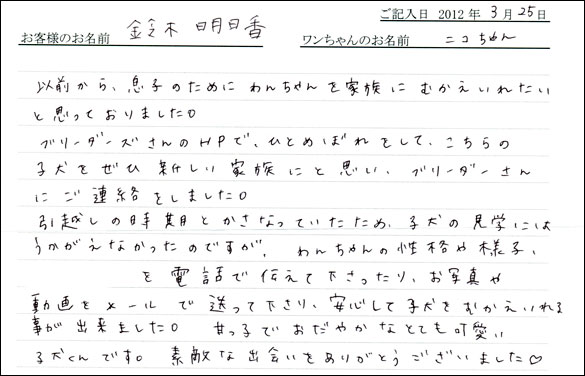 ご記入日 2012年 3月 25日
お客様のお名前 鈴木 明日香 ワンちゃんのお名前 ニコちゃん
以前から、息子のために わんちゃんを家族に むかえいれたい
と思っておりました。
ブリーダーズさんのHPで、ひとめぼれをして、こちらの
子犬をぜひ 新しい 家族にと思い、ブリーダーさん
にご連絡をしました。
引越しの時期とかさなっていたため、子犬の見学には
うかがえなかったのですが、わんちゃんの性格や様子、
を電話で伝えて下さったり、お写真や
動画をメールで送って下さり、安心して子犬をむかえいれる
事が出来ました。 甘っ子でおだやかなとても可愛い
子犬くんです。素敵な出会いをありがとうございました♡